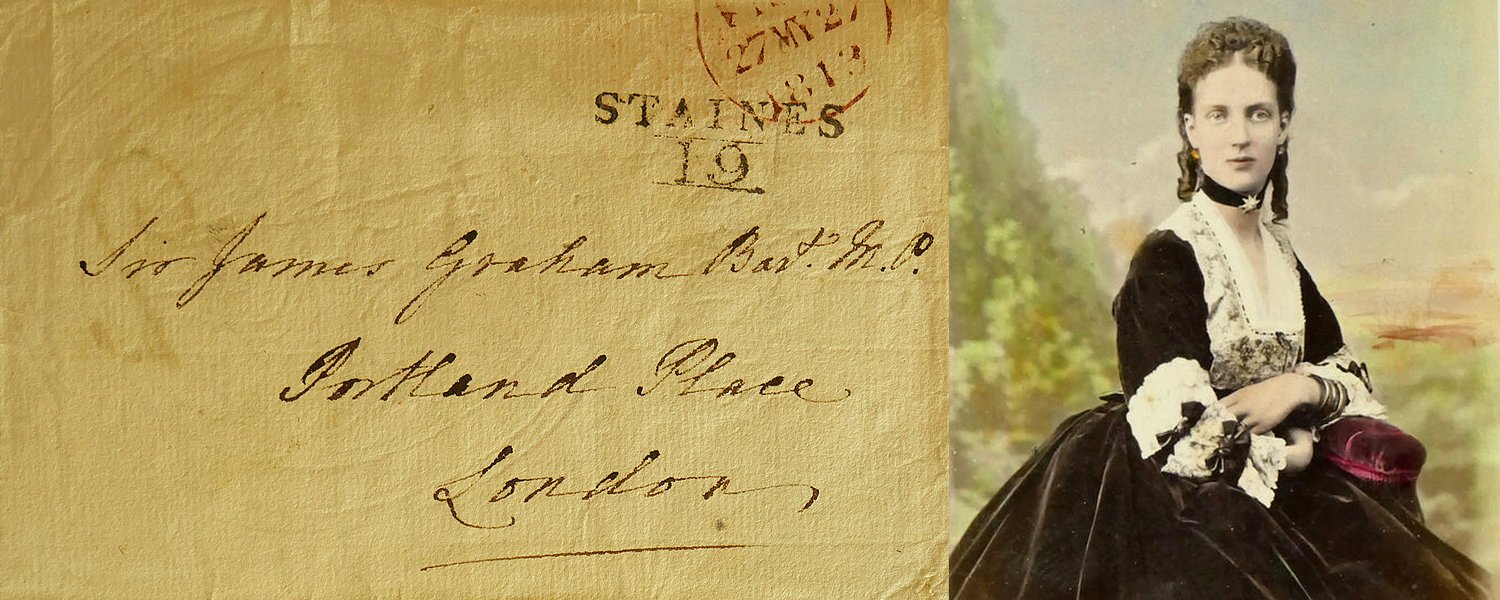 27MY27
STAINES
19
Sir James Graham Bart. M.P.
Portland Place
London